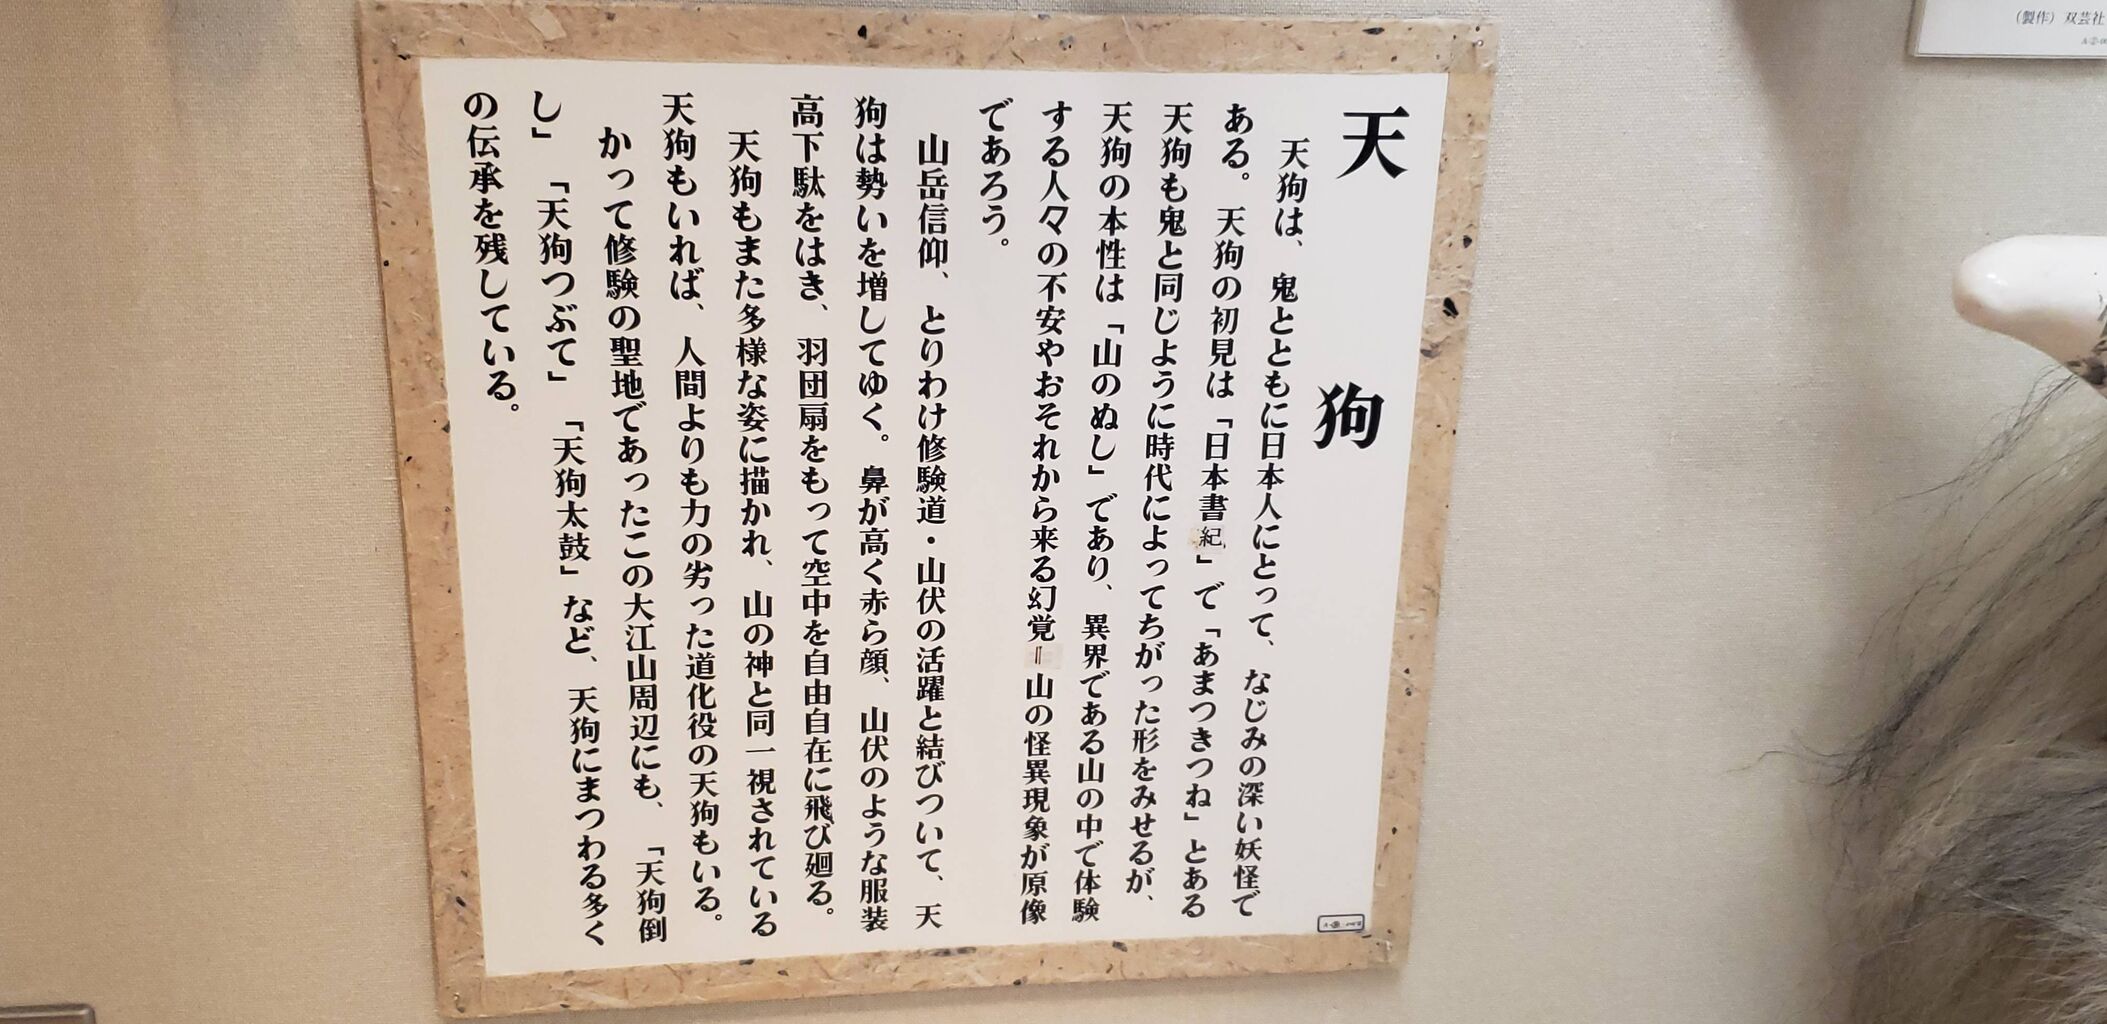 天狗
天狗は、鬼とともに日本人にとって、なじみの深い妖怪で
ある。天狗の初見は「日本書紀」で「あまつきつね」とある
天狗も鬼と同じように時代によってちがった形をみせるが、
天狗の本性は「山のぬし」であり、異界である山の中で体験
する人々の不安やおそれから来る幻覚=山の怪異現象が原像
であろう。
山岳信仰、とりわけ修験道・山伏の活躍と結びついて、天
狗は勢いを増してゆく。鼻が高く赤ら顔、山伏のような服装
高下駄をはき、羽団扇をもって空中を自由自在に飛び廻る。
天狗もまた多様な姿に描かれ、山の神と同一視されている
天狗もいれば、人間よりも力の劣った道化役の天狗もいる。
かって修験の聖地であったこの大江山周辺にも、「天狗倒
し」「天狗つぶて」「天狗太鼓」など、天狗にまつわる多く
の伝承を残している。
(製作)双芸社